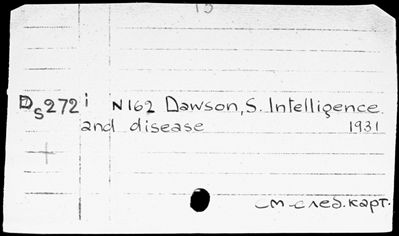 13
Ds272i N162 Dawson, S. Intelligence
and disease 1931
см след. карт.